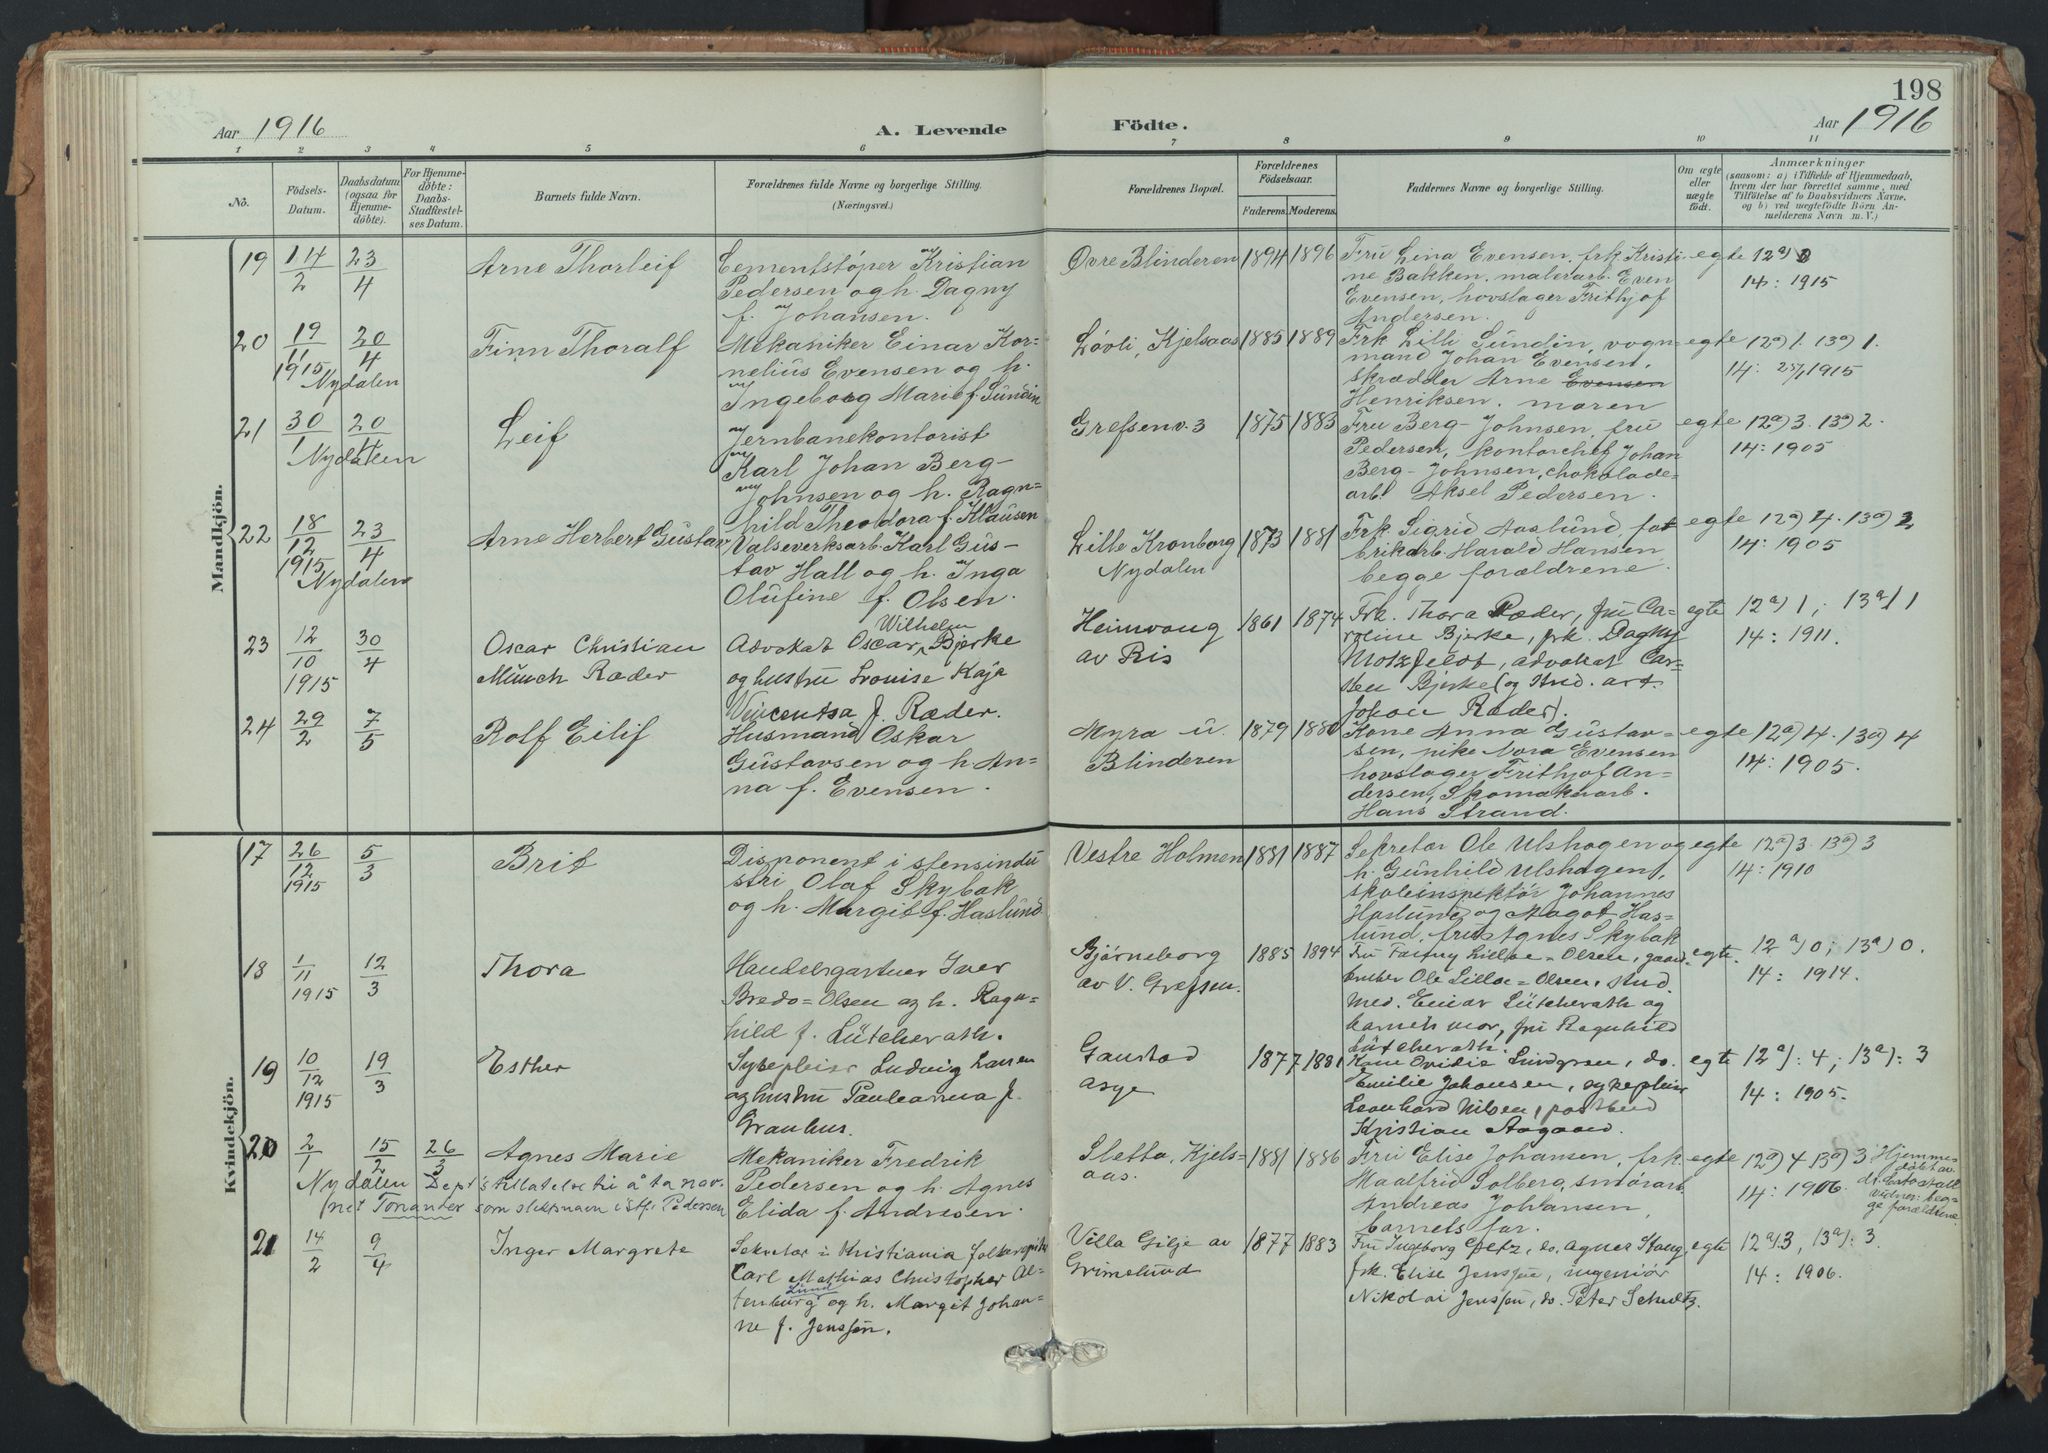 198
Aar 1916
A. Levende
Födte.
Aar 1916
1 2 3 4 5 6 7 8 9 10 11
No.
Födsels-
Datum.
Daabsdatum
(ogsaa for
Hjemme-
döbte).
For Hjemme-
döbte:
Daabs-
Stadfæstel-
ses Datum.
Barnets fulde Navn.
Forældrenes fulde Navne og borgerlige Stilling.
(Næringsvei.)
Forældrenes Bopæl.
Forældrenes
Födselsaar.
Faderens. Moderens.
Faddernes Navne og borgerlige Stilling.
Om ægte
eller
uægte
födt.
Anmærkninger
(saasom: a) i Tilfælde af Hjemmedaab,
hvem der har forrettet samme, med
Tilföielse af to Daabsvidners Navne,
og b) ved uægtefödte Börn An-
melderens Navn m. V.)
Mandkjön.
19
14/2
23/4
Arne Thorleif
Cementstöper Kristian
Pedersen og h. Dagny
f. Johansen.
Övre Blinderen
1894 1896
Fru Lina Evensen, frk. Kristi-
ne Bakken, malerarb. Even
Evensen, hovslager Frithjof
Andersen.
egte
12a) 0
14: 1915
20
19/11
1915
20/4
Nydalen
Finn Thoralf
Mekaniker Einar Kor-
nelius Evensen og h.
Ingeborg Marie f. Sundin
Lövli, Kjelsaas
1885 1889
Frk Lilli Sundin, vogn-
mand Johan Evensen,
skrædder Arne Evensen
Henriksen. moren
egte
12a) 1. 13a) 1.
14: 1915
21
30/1
20/4
Nydalen
Leif
Jernbanekontorist
Karl Johan Berg-
Johnsen og h. Ragn-
hild Theodora f. Klausen
Grefsenv. 3
1875 1883
Fru Berg-Johnsen, fru
Pedersen, kontorchef Johan
Berg-Johnsen, chokolade-
arb. Aksel Pedersen.
egte
12a) 3. 13a) 2.
14: 1905
22
18/12
1915
23/4
Nydalen
Arne Herbert Gustav
Valseverksarb. Karl Gus-
tav Hall og h. Inga
Olufine f. Olsen.
Lille Kronborg
Nydalen
1873 1881
Frk. Sigrid Aaslund, fa-
brikarb. Harald Hansen
begge forældrene.
egte
12a) 4. 13a) 2
14: 1905
23
12/10
1915
30/4
Oscar Christian
Münch Ræder
Advokat Oscar Wilhelm Bjerke
og hustru Louise Kaja
Vincentsa f. Ræder.
Heimvang
av Ris
1861 1874
Frk. Thora Ræder, fru Ca-
roline Bjerke, frk. Dagny
Motzfeldt, advokat Car-
sten Bjerke (og stud. art.
Johan Ræder).
egte
12a) 1; 13a) 1
14: 1911.
24
29/2
7/5
Rolf Eilif
Husmand Oskar
Gustavsen og h. An-
na f. Evensen.
Myra u.
Blinderen
1879 1880
Kone Anna Gustav-
sen, pike Nora Evensen
hovslager Frithjof An-
dersen, Skomakerarb.
Hans Strand.
egte
12a) 4. 13a) 4
14: 1905.
Kvindekjön.
17
26/12
1915
5/3
Brit
Disponent i stensindu
stri Olaf Skybak
og h. Margit f. Haslund
Vestre Holmen
1881 1887
Sekretær Ole Ulshagen og
h. Gunhild Ulshagen,
skoleinspektör Johannes
Haslund og Magot Has-
lund, fru Agnes Skybak
egte
12a) 3. 13a) 3
14: 1910
18
1/11
1915
12/3
Thora
Handelsgartner Iver
Bredo-Olsen og h. Ragn-
hild f. Lütcherath.
Björneborg
av V. Grefsen.
1885 1894
Fru Fanny Lilloe-Olsen, gaard-
bruker Ole Lilloe-Olsen, stud.
med. Einar Lütcherath og
barnets mor, fru Ragnhild
Lütcherath.
egte.
12a) 0; 13a) 0.
14: 1914.
19
10/12
1915
19/3
Esther
Sykepleier Ludvig Larsen
og hustru Paulearna f.
Granhus.
Gaustad
asyl
1877 1881
Kone Ovidia Lindgren, do.
Emilie Johansen, sykepleier
Leonhard Nilsen, postbud
Kristian Aagaard.
egte
12a): 4; 13a): 3
14: 1905.
20
2/1
15/2
26/3
Agnes Marie
Nydalen Dept.s tillatelse til å ta nav-
net Tonander som slektsnavn istf. Pedersen
Mekaniker Fredrik
Pedersen og h. Agnes
Elida f. Andresen.
Sletta, Kjels-
aas.
1881 1886
Fru Elise Johansen, frk.
Maalfrid Solberg, smörarb.
Andreas Johansen,
barnets far.
egte
12a) 4 13a) 3
14: 1906.
Hjemme-
döbt av
vidner: beg-
ge forældrene
21
14/2
9/4
Inger Margrete
Sekretær i Kristiania folkeregister
Carl Mathias Christopher Al-
tenburg Lund og h. Margit Johan-
ne f. Jenssen.
Villa Gilje av
Grimelund
1877 1883
Fru Ingeborg Getz, do. Agnes Stang,
frk. Elise Jenssen, ingeniör
Nikolai Jenssen, do. Peter Schultz.
egte
12a): 3, 13a): 3.
14: 1906.